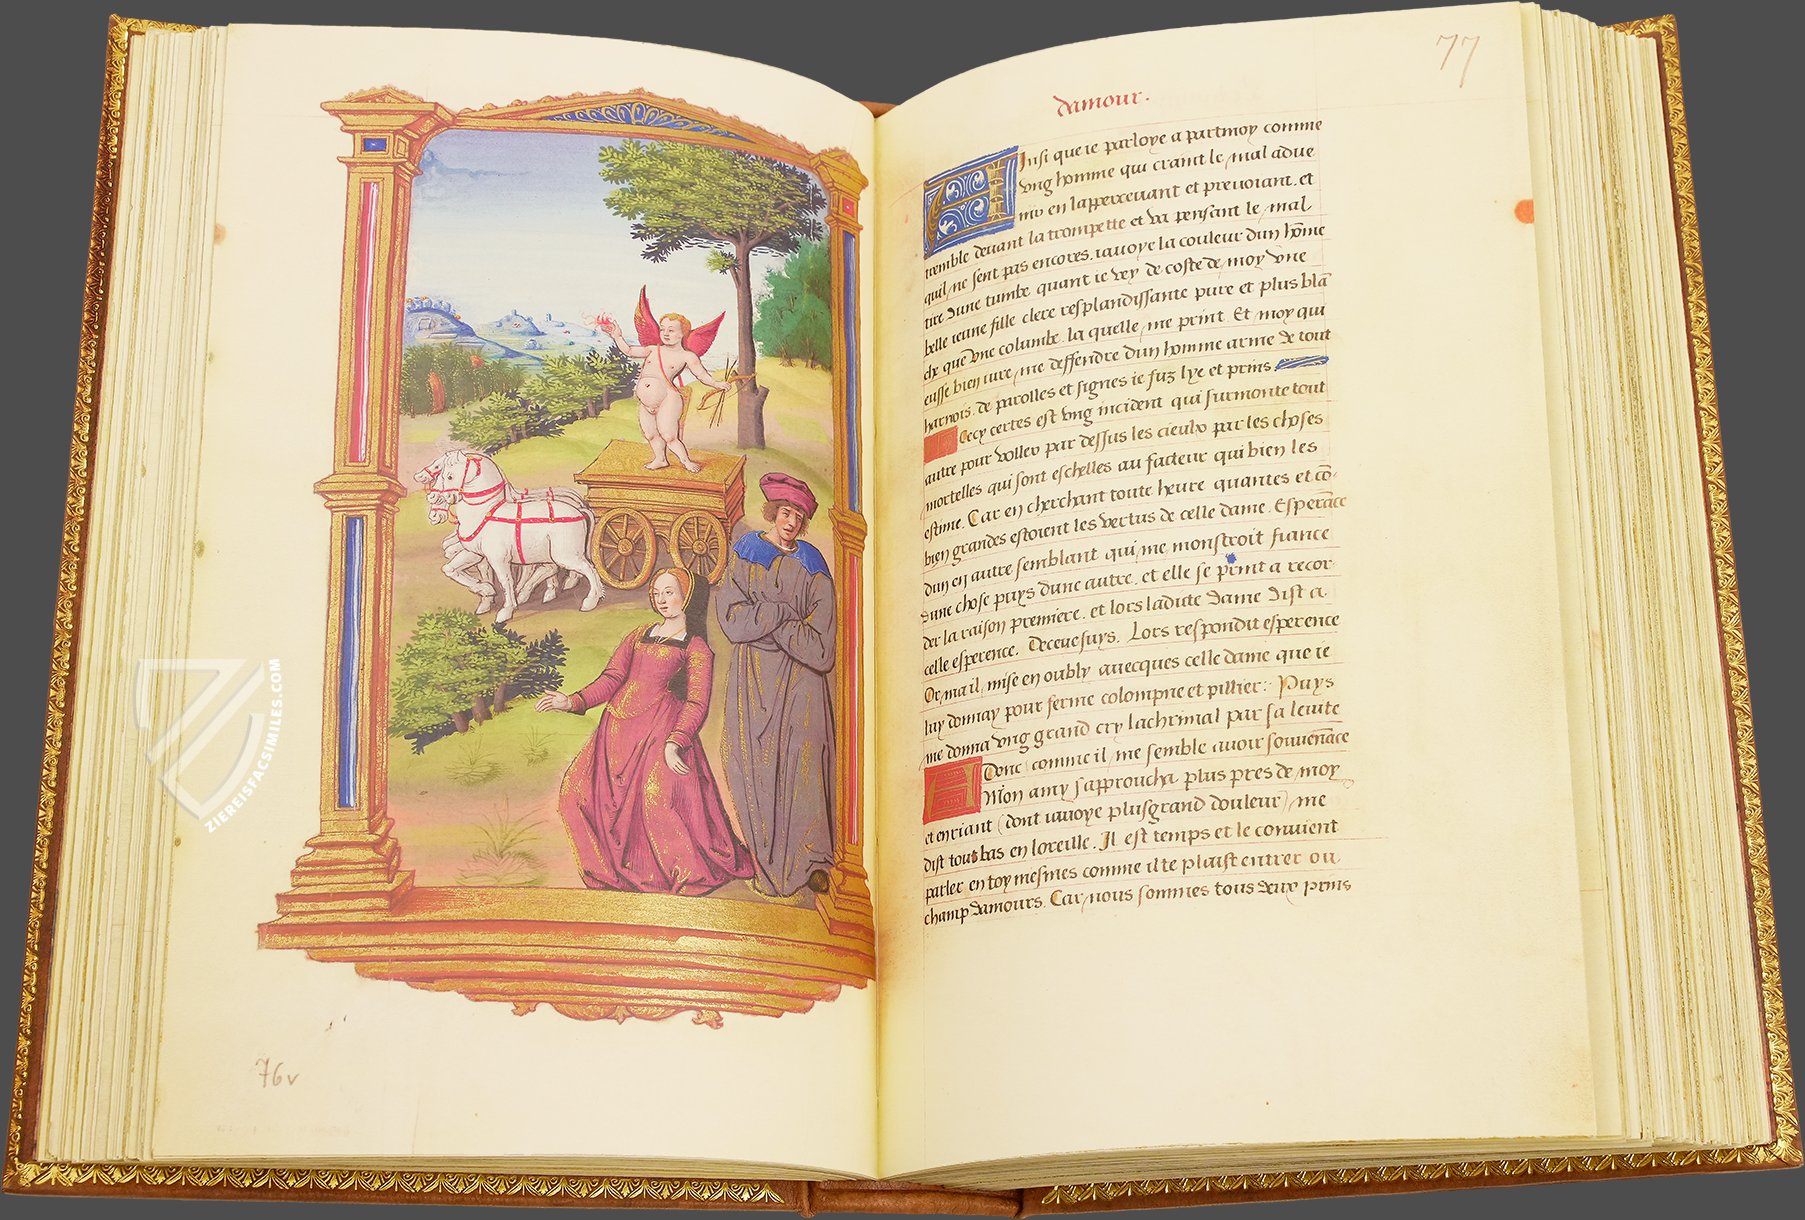 76v
ZIEREISFACSIMILES.COM
77
damour.
Insi que ie parloye a partmoy comme
vng homme qui craint le mal adue
nir en lappercevant et prevoiant, et
tremble devant la trompette et va pensant le mal
quil ne sent pas encores, iavoye la couleur dun hōme
tire dune tumbe quant ie vey de coste de moy vne
belle ieune fille clere resplandissante pure et plus blā
che que vne columbe, la quelle me print. Et moy qui
eusse bien iure me deffendre dun homme arme de tout
harnois, de parolles et signes ie fuz lye et prins
Cecy certes est vng incident qui surmonte tout
autre pour voller par dessus les cieulx par les choses
mortelles qui sont eschelles au facteur qui bien les
estime. Car en cherchant toute heure quantes et cō-
bien grandes estoient les vertus de celle dame. Esperāce
dun en autre semblant qui me monstroit fiance
dune chose puys dune autre, et elle se print a recor-
der la raison premiere, et lors ladicte dame dist a
celle esperence. Deceue suys. Lors respondit esperence
Or ma il mise en oubly avecques celle dame que ie
luy donnay pour ferme colompne et pillier: Puys
me donna vng grand cry lachrimal par sa
Adonc comme il me semble avoir souvenāce
Mon amy sapproucha plus pres de moy
et en riant (dont iavoye plus grand douleur) me
dist tout bas en loreille. Il est temps et le convient
parler en toy mesmes comme il te plaist entrer ou
champ damours. Car nous sommes tous deux prins